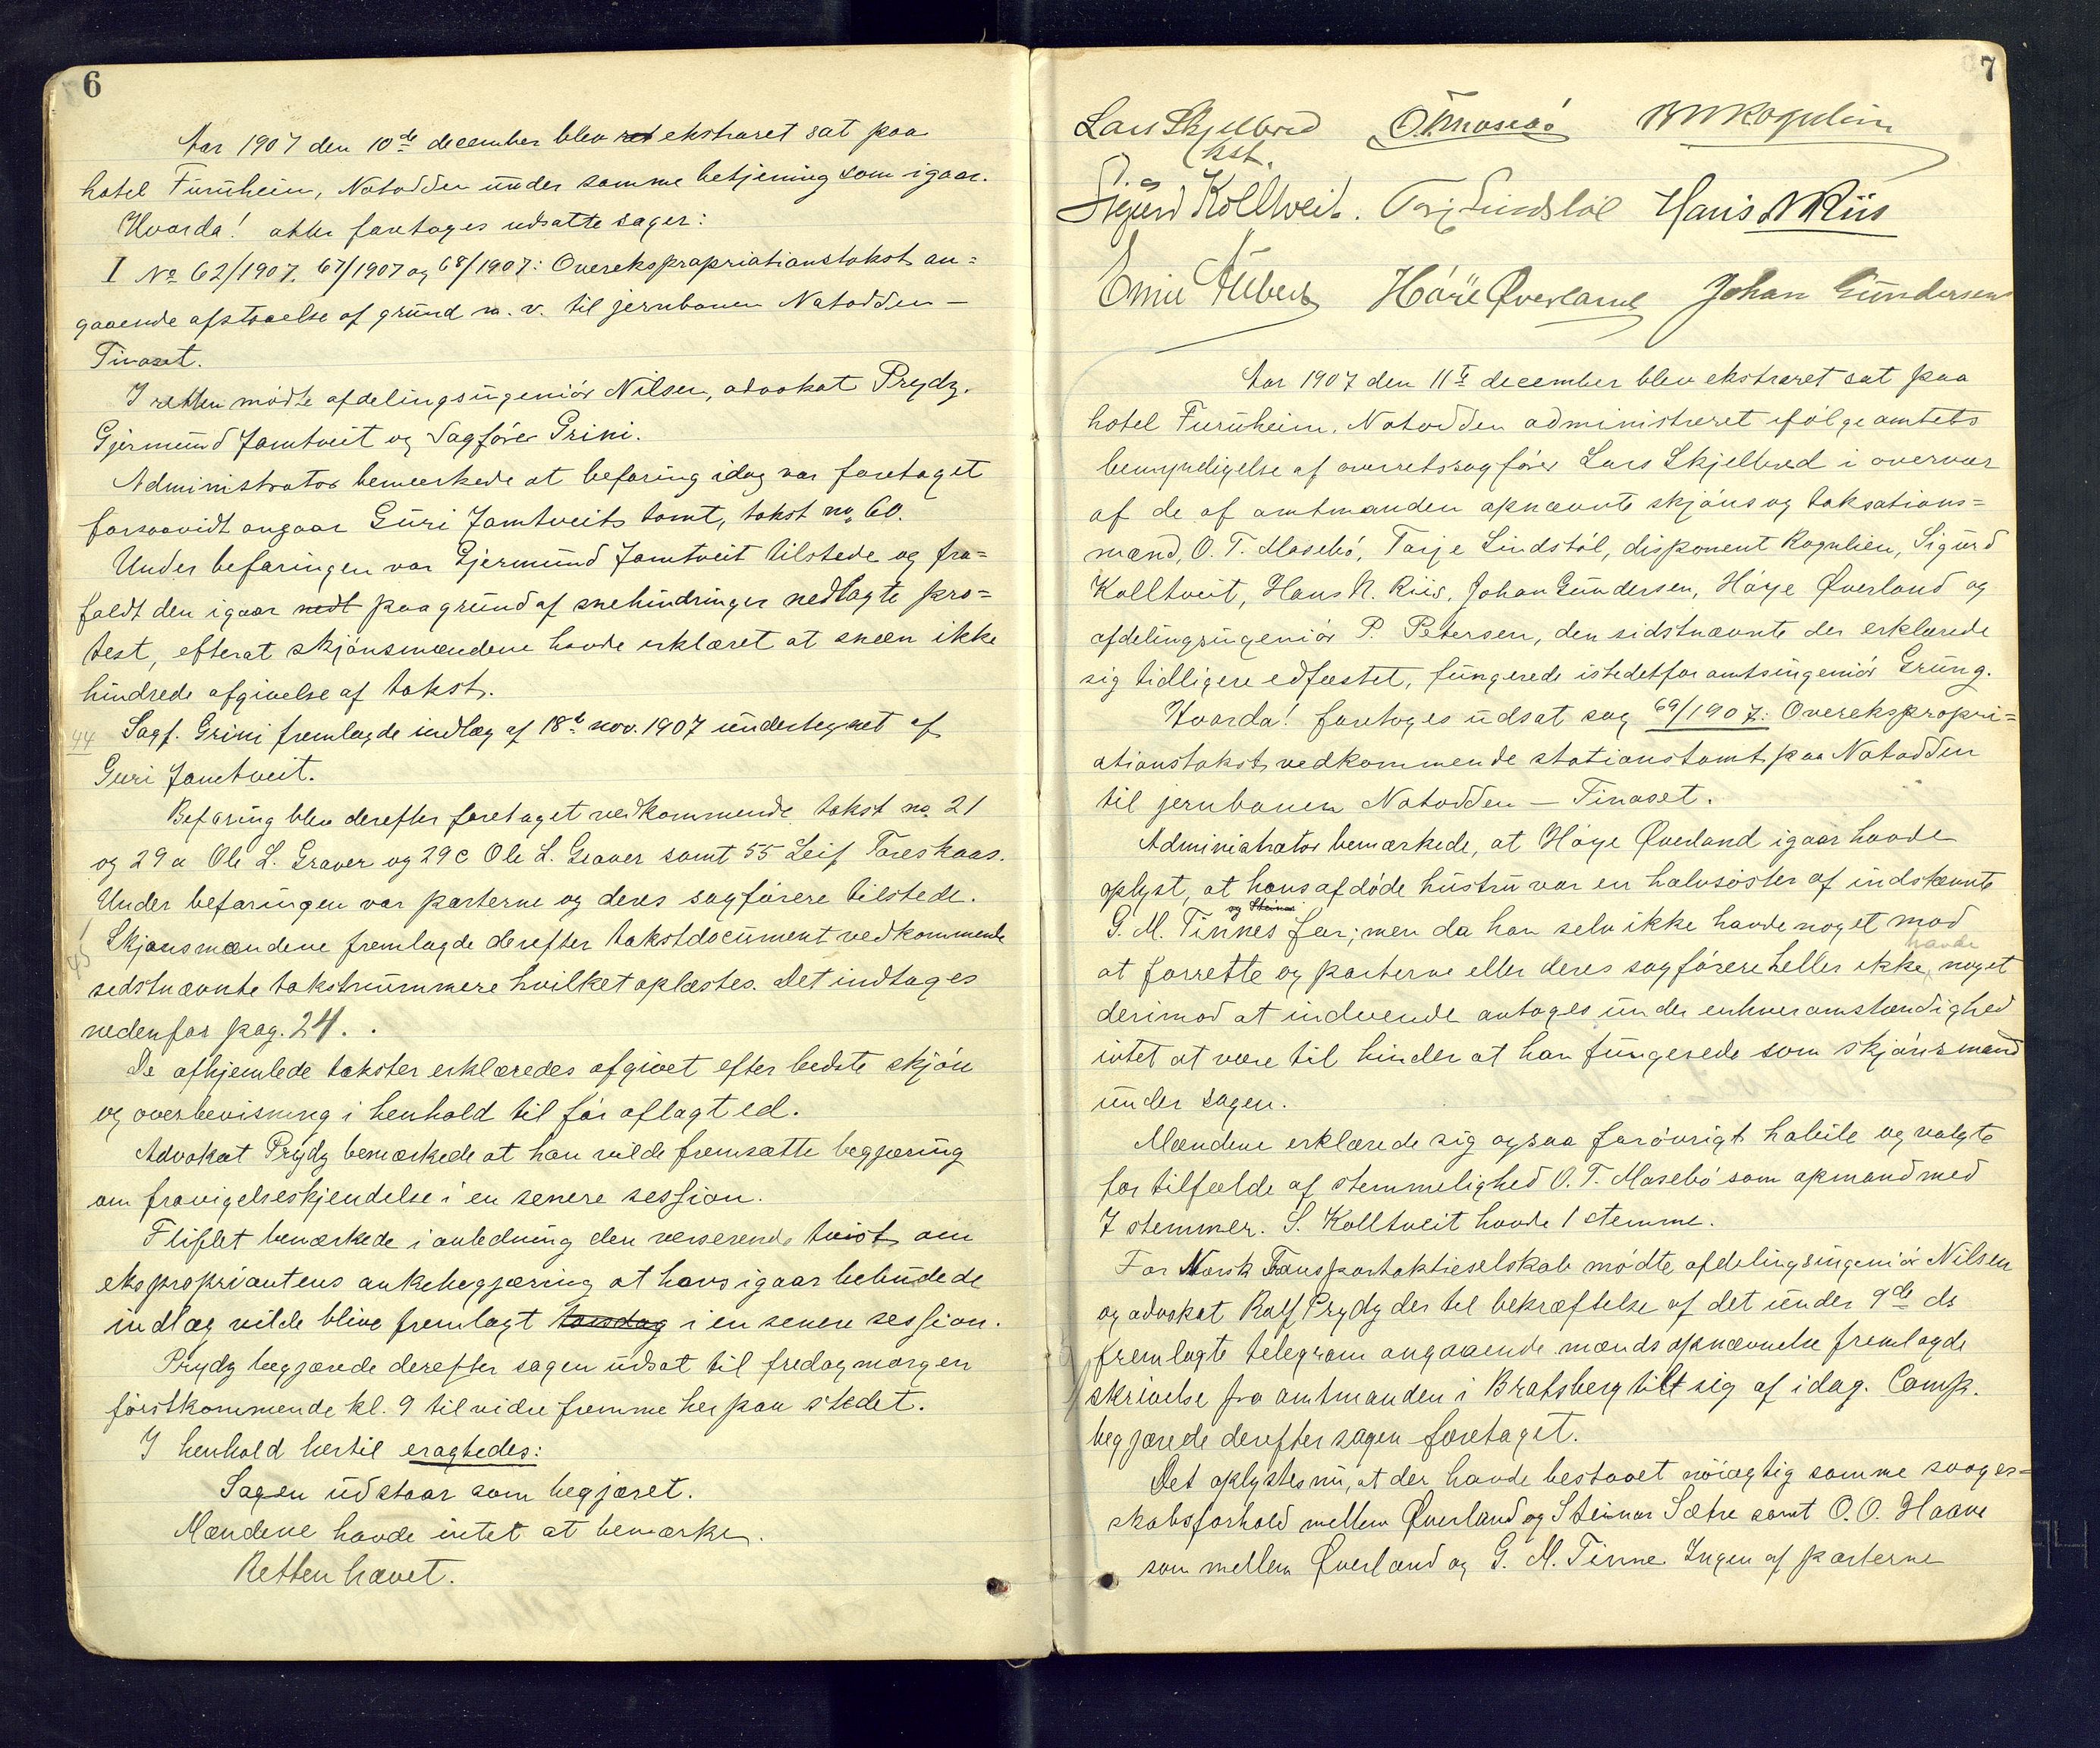 6
Aar 1907 den 10de december blev ret ekstraret sat paa
hotel Furuheim, Notodden under samme betjening som igaar.
Hvorda! atter foretoges udsatte sager:
I No 62/1907, 67/1907 og 68/1907: Overekspropriationstakst an=
gaaende afstaaelse af grund m. v. til jernbanen Notodden —
Tinoset.
I retten mødte afdelingsingeniør Nilsen, advokat Prydz.
Gjermund Jamtveit og Sagfører Grini.
Administrator bemerkede at befaring idag var foretaget
forsaavidt angaar Guri Jamtveits tomt, takst no. 60.
Under befaringen var Gjermund Jamtveit tilstede og fra=
faldt den igaar nedt paa grund af snehindringer nedlagte pro=
test, efterat skjønsmændene havde erklæret at sneen ikke
hindrede afgivelse af takst.
44 Sagf. Grini fremlagde indlæg af 18d nov. 1907 undertegnet af
Guri Jamtveit.
Befaring blev derefter foretaget vedkommende takst no. 21
og 29a Ole L. Graver og 29c Ole L. Graver samt 55 Leif Foreskaas.
Under befaringen var parterne og deres sagførere tilstede.
45 Skjønsmændene fremlagde derefter takstdocument vedkommende
sidstnævnte takstnummere hvilket oplæstes. Det indtages
nedenfor pag. 24.
De afhjemlede takster erklæredes afgivet efter bedste skjøn
og overbevisning i henhold til før aflagt ed.
Advokat Prydz bemærkede at han vilde fremsætte begjæring
om fravigelseskjendelse i en senere session.
Fliflet bemærkede i anledning den verserende tvist om
ekspropriantens ankebegjæring at hans igaar bebudede
indlæg vilde blive fremlagt torsdag i en senere session.
Prydz begjærede derefter sagen udsat til fredag morgen
førstkommende kl. 9 til videre fremme her paa stedet.
I henhold hertil eragtedes:
Sagen udstaar som begjæret.
Mændene havde intet at bemærke.
Retten hævet.
7
Lars Skjelbred O. T. Mosebø
kst.
Sigurd Kolltveit. Tarj Lindstøl Hans N Riis
Høye Øverland Johan Gundersen
Aar 1907 den 11te december blev ekstraret sat paa
hotel Furuheim, Notodden administreret ifølge amtets
bemyndigelse af overretssagfører Lars Skjelbred i overvær
af de af amtmanden opnævnte skjøns og taksations=
mænd, O. T. Mosebø, Tarje Lindstøl, disponent Rognlien, Sigurd
Kolltveit, Hans N. Riis, Johan Gundersen, Høye Øverland og
afdelingsingeniør P. Petersen, den sidstnævnte der erklærede
sig tidligere edfæstet, fungerede istedetfor amtsingeniør Grung.
Hvorda! foretoges udsat sag 69/1907: Overekspropri=
ationstakst vedkommende stationstomt paa Notodden
til jernbanen Notodden — Tinoset.
Administrator bemærkede, at Høye Øverland igaar havde
oplyst, at hans afdøde hustru var en halvsøster af indstævnte
og Steinar
G. M. Tinnes far; men da han selv ikke havde noget mod
havde
at forrette og parterne eller deres sagførere heller ikke noget
derimod at indvende antoges under enhver omstændighed
intet at være til hinder at han fungerede som skjønsmand
under sagen.
Mændene erklærede sig ogsaa forøvrigt habile og valgte
for tilfælde af stemmelighed O. T. Mosebø som opmand med
7 stemmer. S. Kolltveit havde 1 stemme.
For Norsk Transportaktieselskab mødte afdelingsingeniør Nilsen
og advokat Ralf Prydz der til bekræftelse af det under 9de ds
fremlagte telegram angaaende mænds opnævnelse fremlagde
skrivelse fra amtmanden i Bratsberg tilt sig af idag. Comp.
begjærede derefter sagen foretaget.
Det oplystes nu, at der havde bestaaet nøiagtig samme svoger=
skabsforhold mellem Øverland og Steinar Sætre samt O. O. Haave
som mellem Øverland og G. M. Tinne. Ingen af parterne